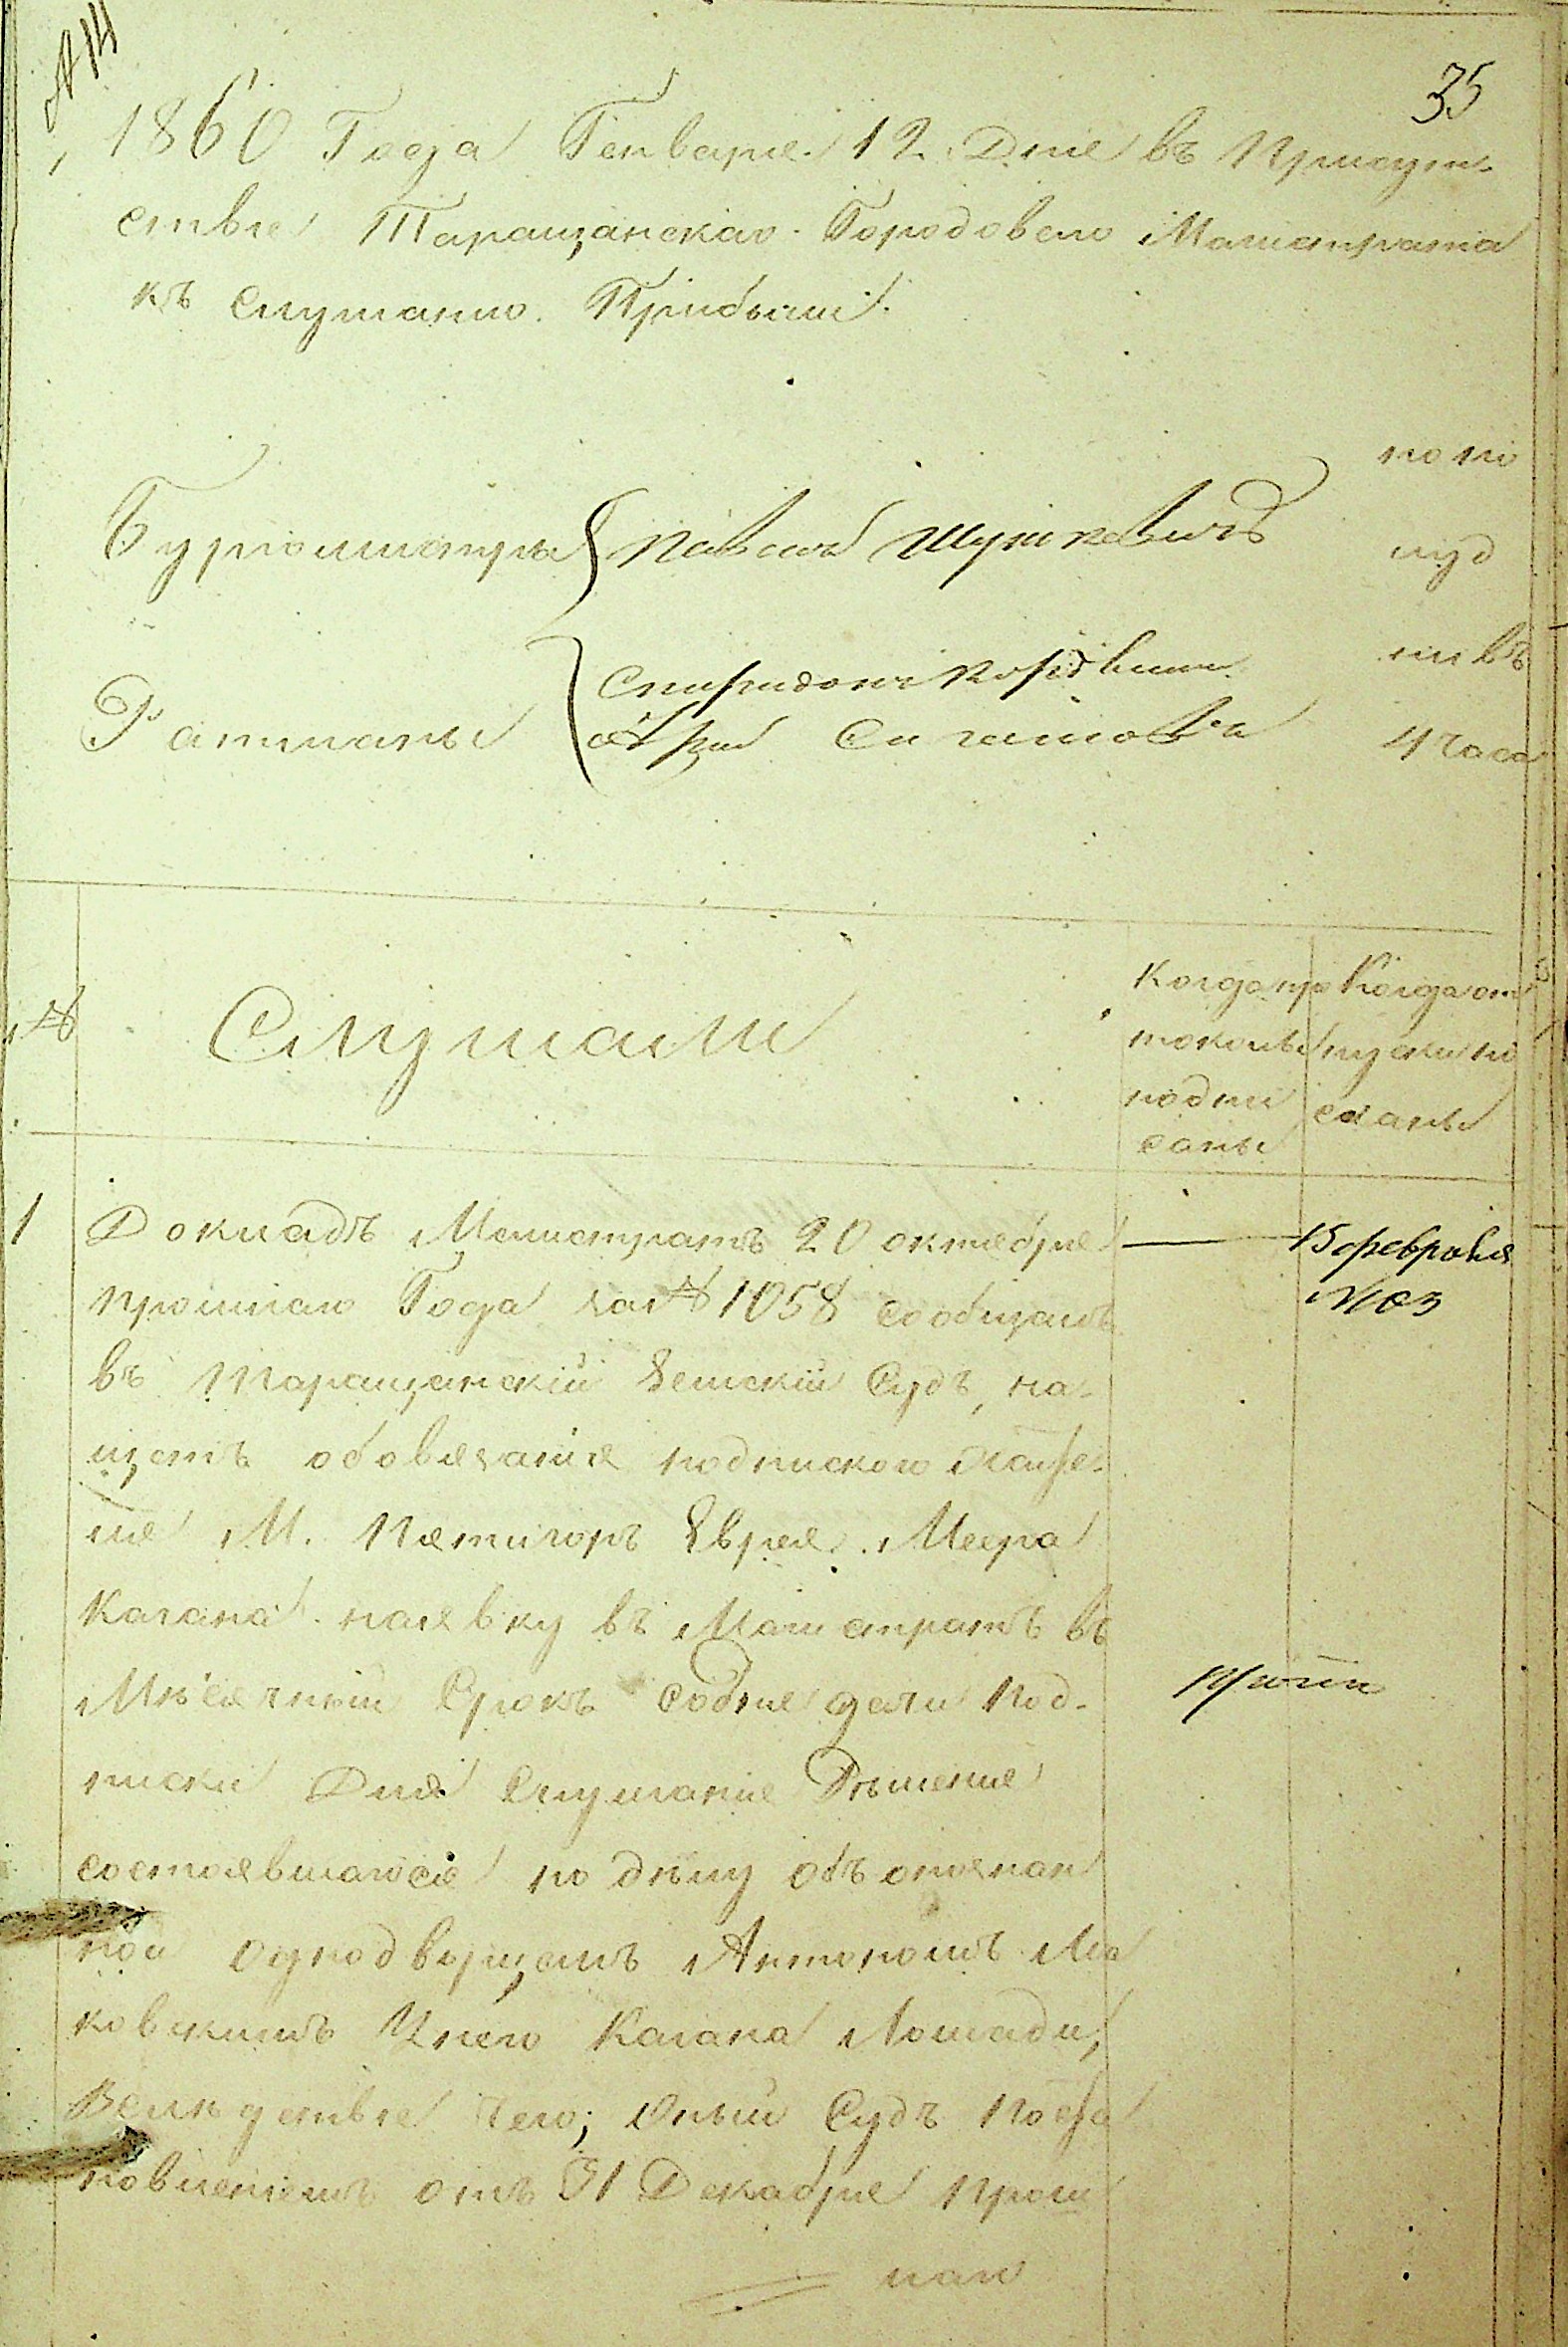 № 14
35
1860 Года Генваря 12 Дня въ Присут-
ствіе Таращанскаго Городоваго Магистрата
къ слушанію Прибыли
Бургомистры Павелъ Шуткевичъ
Ратманы Спиридонъ
по по
луд
ни въ
4 часа
№ Слушали
Когда про
токолы
подпи
саны
Когда от
пуски по
сланы
1 Докладъ Магистратъ 20 октября
прошлаго Года за № 1058 сообщалъ
въ Таращанскій Земскій Судъ, на-
щетъ обовязанія подпискою
ля М. Пятигоръ Еврея Меера
Кагана наявку въ Магистратъ въ
Мѣсячный Срокъ содня дачи Под-
писки Для Слушанія Рѣшенія
состоявшагося по дѣлу объ отнятан
ной однодворцемъ Антономъ Ма
ковскимъ Унего Кагана Лошади,
Вслѣдствіе чего; Оный Судъ
новленіемъ отъ 31 Декабря прош
лаго
15 февраля
№ 103